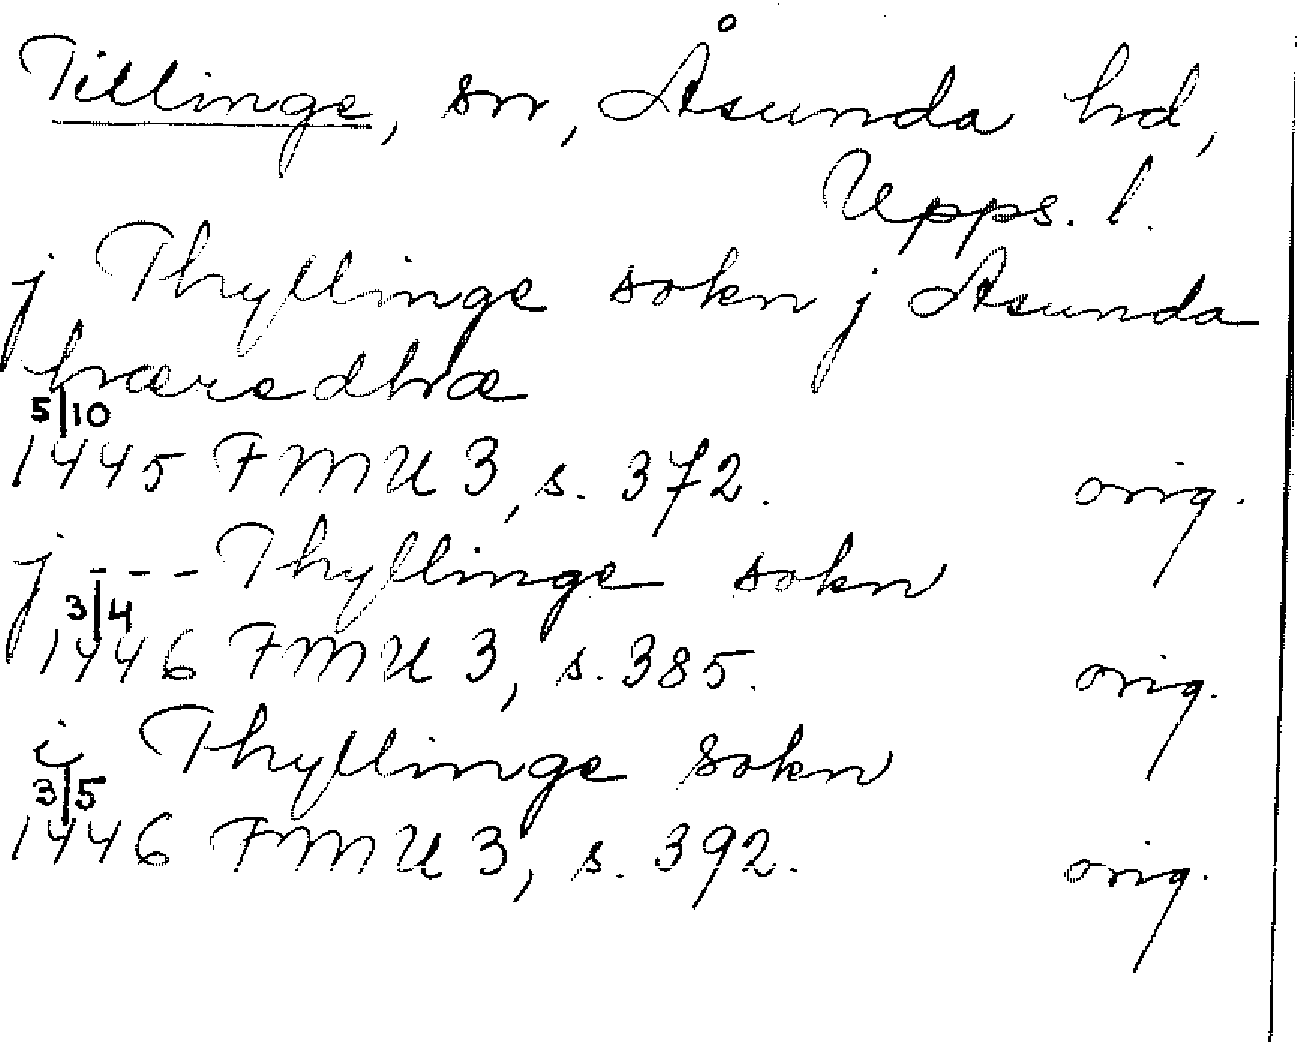 Tillinge, sn, Åsunda hd,
Upps. l.
j Thyllinge sokn j Asunda
hæredhæ
5/10
1445 FMU 3, s. 372. orig.
j --- Thyllinge sokn
3/4
1446 FMU 3, s. 385. orig.
i Thyllinge sokn
3/5
1446 FMU 3, s. 392. orig.